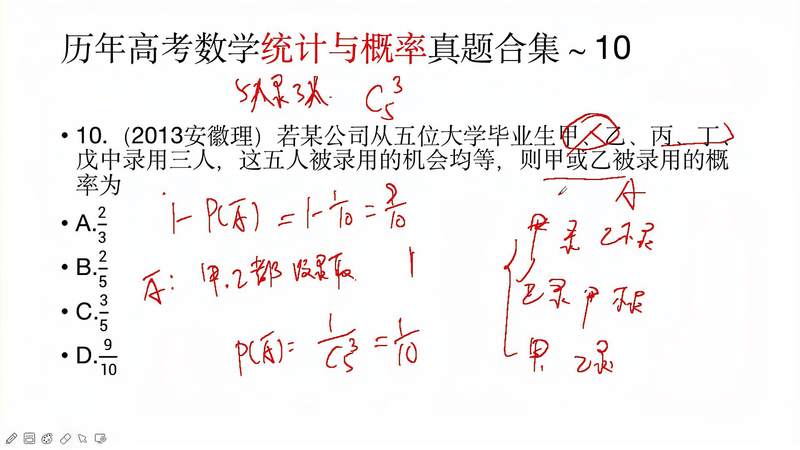 历年高考数学统计与概率真题合集 ~ 10
5人录3人 C₅³
• 10.（2013安徽理）若某公司从五位大学毕业生甲、乙、丙、丁、
戊中录用三人，这五人被录用的机会均等，则甲或乙被录用的概
率为
A
• A. 2/3
• B. 2/5
• C. 3/5
• D. 9/10
1-P(Ā) = 1-1/10 = 9/10
Ā: 甲.乙都没录取 1
P(Ā) = 1/C₅³ = 1/10
甲录 乙不录
乙录 甲不录
甲 乙录